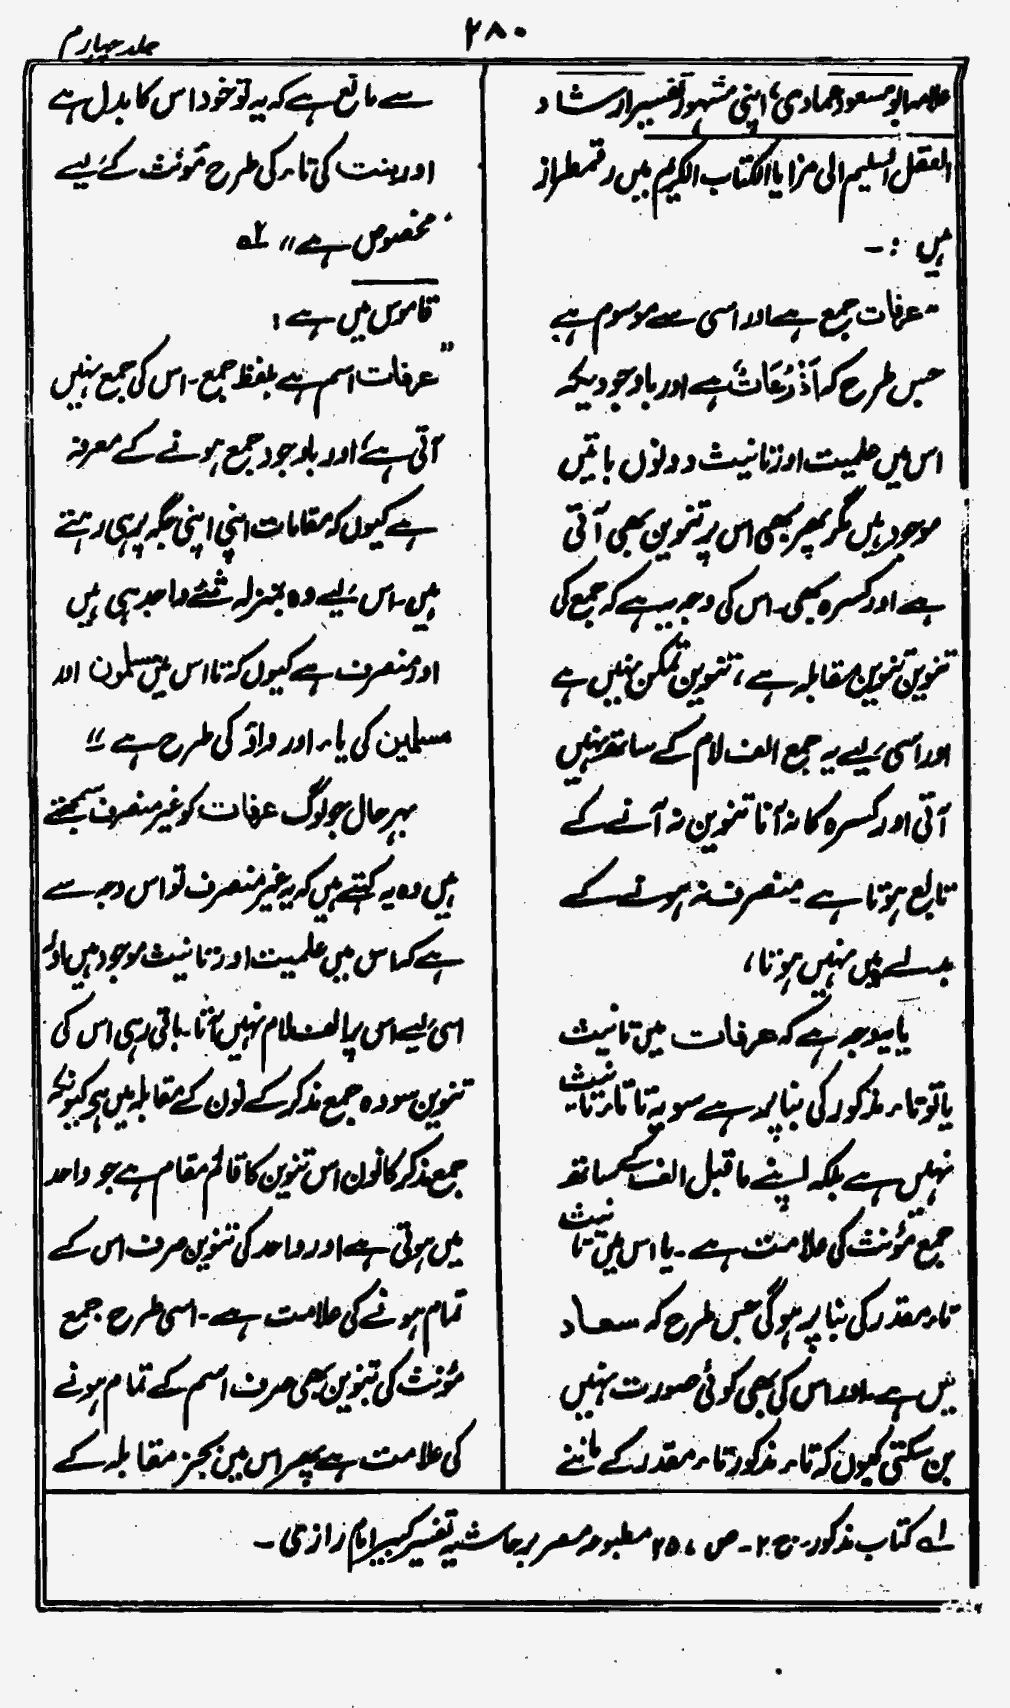 ۲۸۰
جلد چہارم
علامہ ابو مسعود عمادی، اپنی مشہور تفسیر ارشاد
العقل السلیم الی مزایا الکتاب الکریم میں رقمطراز
ہیں :-
"عرفات جمع ہے اور اسی سے موسوم ہے
جس طرح کہ اَذْرُعَاتٌ ہے اور باوجودیکہ
اس میں علمیت اور تانیث دونوں باتیں
موجود ہیں مگر پھر بھی اس پر تنوین بھی آتی
ہے اور کسرہ بھی۔ اس کی وجہ یہ ہے کہ جمع کی
تنوین تنوین مقابلہ ہے، تنوین تمکن نہیں ہے
اور اسی لیے یہ جمع الف لام کے ساتھ نہیں
آتی اور کسرہ کا نہ آنا تنوین نہ آنے کے
تابع ہوتا ہے منصرف نہ ہونے کے
بدلے میں نہیں ہوتا،
یا یہ وجہ ہے کہ عرفات میں تانیث
یا تو تاء مذکور کی بنا پر ہے سو یہ تا تاء تانیث
نہیں ہے بلکہ اپنے ماقبل الف کے ساتھ
جمع مؤنث کی علامت ہے۔ یا اس میں تانیث
تاء مقدر کی بنا پر ہوگی جس طرح کہ سعاد
میں ہے۔ اور اس کی بھی کوئی صورت نہیں
بن سکتی کیوں کہ تاء مذکور تاء مقدر کے ماننے
سے مانع ہے کہ یہ تو خود اس کا بدل ہے
اور بنت کی تاء کی طرح مؤنث کے لیے
مخصوص ہے" ۲ھ
قاموس میں ہے :
"عرفات اسم ہے بلفظ جمع۔ اس کی جمع نہیں
آتی ہے، اور باوجود جمع ہونے کے معرفہ
ہے کیوں کہ مقامات اپنی اپنی جگہ پر ہی رہتے
ہیں۔ اس لیے وہ بمنزلہ شئے واحد ہی ہیں
اور منصرف ہے کیوں کہ تا اس میں مسلمون اور
مسلمین کی یاء اور واؤ کی طرح ہے"
بہرحال جو لوگ عرفات کو غیر منصرف سمجھتے
ہیں وہ یہ کہتے ہیں کہ یہ غیر منصرف تو اس وجہ سے
ہے کہ اس میں علمیت اور تانیث موجود ہیں اور
اسی لیے اس پر الف لام نہیں آتا۔ باقی رہی اس کی
تنوین سو وہ جمع مذکر کے نون کے مقابلہ میں ہے کیونکہ
جمع مذکر کا نون اس تنوین کا قائم مقام ہے جو واحد
میں ہوتی ہے اور واحد کی تنوین صرف اس کے
تمام ہونے کی علامت ہے۔ اسی طرح جمع
مؤنث کی تنوین بھی صرف اسم کے تمام ہونے
کی علامت ہے پھر اس میں بجز مقابلہ کے
لے کتاب مذکور۔ ج ۲۔ ص ۲۵۷ مطبوعہ مصر بر حاشیہ تفسیر کبیر امام رازی۔